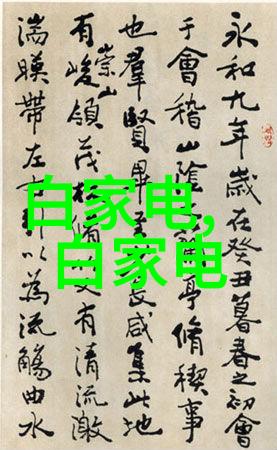 永和九年歲在癸丑暮春之初會
于會稽山陰亭脩稧事
也羣賢畢咸集此地
有崇山峻領茂林脩又有清流激
湍暎帶左右引以為流觴曲水
白家电,
白家电